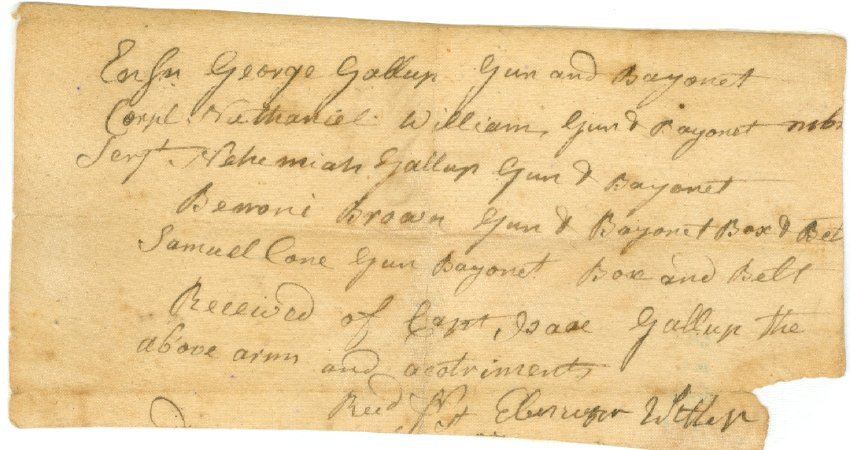 Ensn George Gallup Gun and Bayonet
Corpl. Nathaniel William Gun & Bayonet
Serjt. Nehemiah Gallup Gun & Bayonet
Benoni Brown Gun & Bayonet Box & Bel
Samuel Cone Gun Bayonet Box and Belt
Received of Capt Isaac Gallup the
above arms and acotriments
Recd Ebenezer